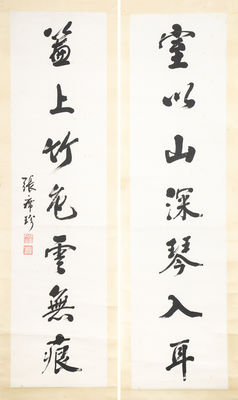 室以山深琴入耳
上竹雲無痕
張